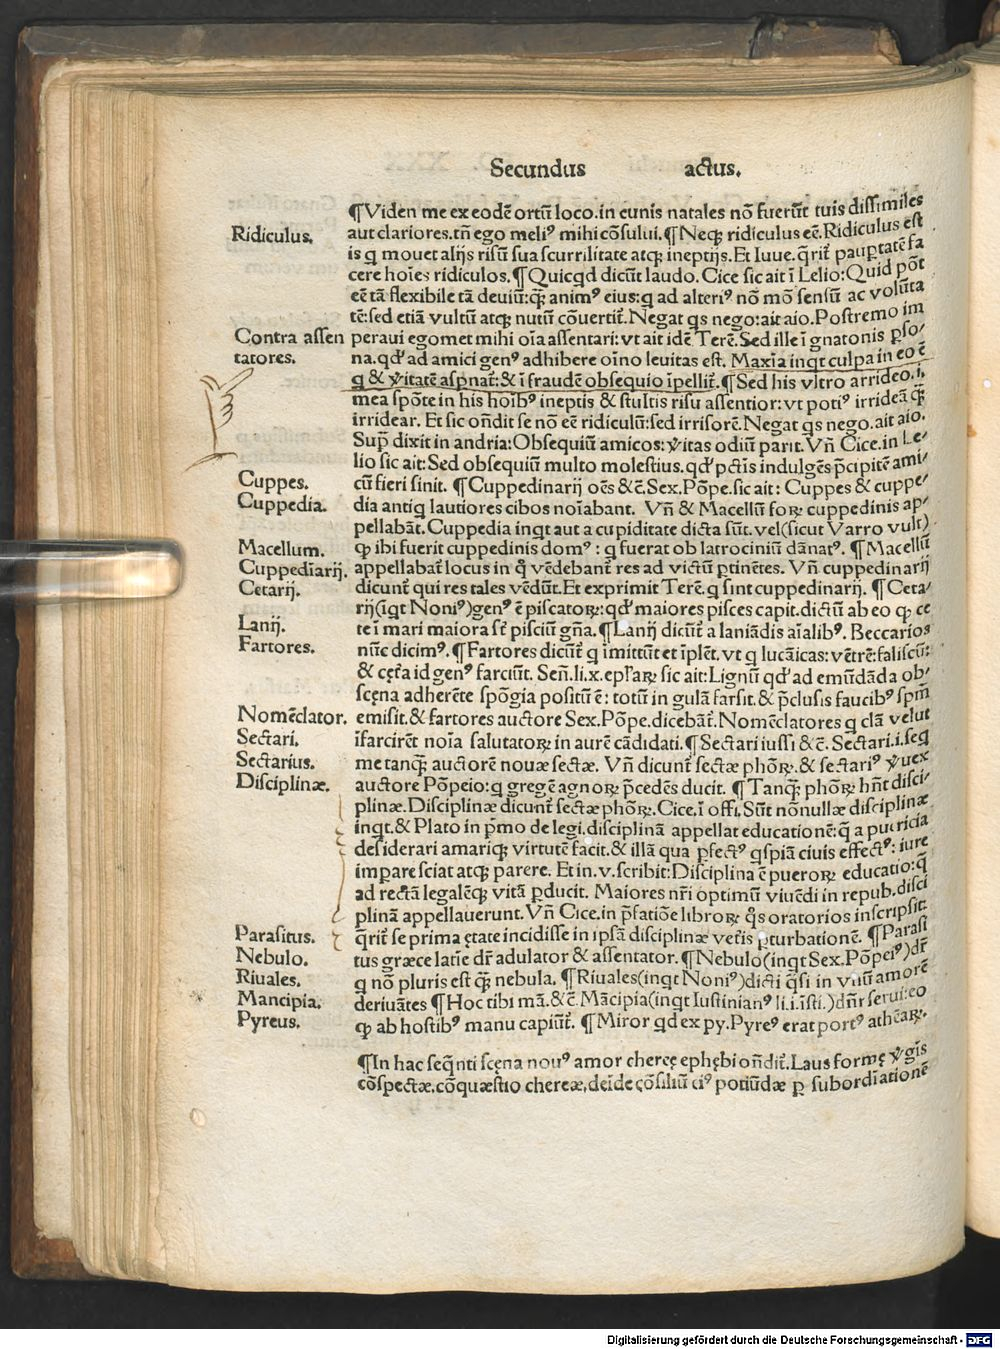 Secundus actus.
¶Viden me ex eodē ortū loco.in cunis natales nō fuerūt tuis dissimiles
Ridiculus. aut clariores.tn̄ ego meliꝰ mihi cōsului.¶Neqꝫ ridiculus eē.Ridiculus est
is q̄ mouet alijs risū sua scurrilitate atqꝫ ineptijs.Et Iuue.q̄rit̄ pauꝑtatē fa
cere hoīes ridiculos.¶Quicqd dicūt laudo. Cice sic ait ī Lelio:Quid pōt
eē tā flexibile tā deuiū:qꝫ̄ animꝰ eius:q ad alteriꝰ nō mō sensū ac volūta
tē:sed etiā vultū atqꝫ nutū cōuertit̄. Negat qs nego:ait aio. Postremo im
Contra assen peraui egomet mihi oīa assentari: vt ait idē Terē. Sed ille ī gnatonis ꝑso/
tatores. na.qd' ad amici genꝰ adhibere oīno leuitas est. Maxīa inqt culpa in eo ē
q & v̄itatē asp̄nat̄:& ī fraudē obsequio īpellit̄.¶Sed his vltro arrideo.i.
mea spōte in his hoībꝰ ineptis & stultis risu assentior: vt potiꝰ irrideā qꝫ̄
irridear. Et sic on̄dit se nō eē ridiculū:sed irrisorē. Negat qs nego.ait aio.
Sup̄ dixit in andria: Obsequiū amicos: v̄itas odiū parit. Vn̄ Cice.in Le/
lio sic ait: Sed obsequiū multo molestius.qd' pctīs indulgēs p̄cipitē ami/
Cuppes. cū fieri sinit. ¶Cuppedinarij oēs &c̄. Sex. Pōpe. sic ait: Cuppes & cuppe/
Cuppedia. dia antiq lautiores cibos noīabant. Vn̄ & Macellū foꝝ cuppedinis ap/
pellabāt. Cuppedia inqt aut a cupiditate dicta sūt. vel(sicut Varro vult)
Macellum. ꝙ ibi fuerit cuppedinis domꝰ : q fuerat ob latrociniū dānatꝰ. ¶Macellū
Cuppedīarij. appellabat̄ locus in q̊ vēdebant̄ res ad victū ꝑtinētes. Vn̄ cuppedinarij
Cetarij. dicunt̄ qui res tales vēdūt. Et exprimit Terē.q sint cuppedinarij. ¶Ceta/
rij(īqt Noniꝰ)genꝰ ē piscatoꝝ:qd' maiores pisces capit.dictū ab eo ꝙ ce
Lanij. te ī mari maiora st̄ pisciū gn̄a.¶Lanij dicūt̄ a laniādis aīalibꝰ. Beccarios
Fartores. nūc dicimꝰ.¶Fartores dicūt̄ q īmittūt et īplēt. vt q lucāicas: vētrē:faliscū:
& cęt̄a id genꝰ farciūt. Sen̄.li.x.epl̄aꝝ sic ait: Lignū qd' ad emūdāda ob/
scęna adherēte spōgia positū ē: totū in gulā farsit.& p̄clusis faucibꝰ spm̄
Nomēclator. emisit.& fartores auctore Sex. Pōpe.dicebāt̄. Nomēclatores q clā velut
Sectari. īfarcirēt noīa salutatoꝝ in aurē cādidati.¶Sectari iussi &c̄. Sectari.i.seq
Sectarius. me tanqꝫ̄ auctorē nouæ sectæ. Vn̄ dicunt̄ sectæ phōꝝ.& sectariꝰ v̄uex
Disciplinæ. auctore Pōpeio:q gregē agnoꝝ p̄cedēs ducit. ¶Tanqꝫ̄ phōꝝ hn̄t disci/
plinæ. Disciplinæ dicunt̄ sectæ phōꝝ. Cice.ī offi. Sūt nōnullæ disciplinæ
inqt.& Plato in p̄mo de legi.disciplinā appellat educationē:q̄ a puericia
desiderari amariqꝫ virtutē facit.& illā qua ꝑfectꝰ qspiā ciuis effectꝰ: iure
imparare sciat atqꝫ parere. Et in.v.scribit:Disciplina ē pueroꝝ educatio:q̄
ad rectā legalēqꝫ vitā ꝑducit. Maiores nr̄i optimū viuēdi in repub.disci
plinā appellauerunt. Vn̄ Cice.in p̄fatiōe libroꝝ q̊s oratorios inscripsit.
Parasitus. q̄rit̄ se prima ętate incidisse in ipsā disciplinæ vet̄is ꝑturbationē. ¶Parasi
Nebulo. tus græce latīe dr̄ adulator & assentator. ¶Nebulo(inqt Sex. Pōpeiꝰ)dr̄
Riuales. q nō pluris est qꝫ̄ nebula. ¶Riuales(inqt Noniꝰ)dicti q̄si in vnū amorē
Mancipia. deriuātes ¶Hoc tibi mā.&c̄. Mācipia(inqt Iustinianꝰ li.i.īsti.)dn̄r serui:eo
Pyreus. ꝙ ab hostibꝰ manu capiūt̄. ¶Miror qd ex py. Pyreꝰ erat portꝰ athēaꝝ.
¶In hac seq̄nti scęna nouꝰ amor cherę ephębi on̄dit̄. Laus formę v̄gīs
cōspectæ.cōquæstio chereæ.deīde cōsiliū eiꝰ potiūdæ ꝑ subordīationē
Digitalisierung gefördert durch die Deutsche Forschungsgemeinschaft - DFG